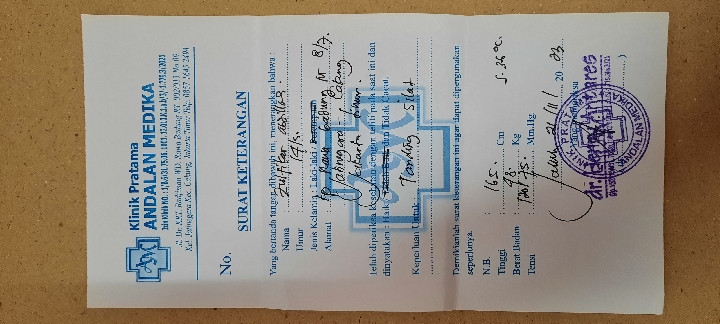 Klinik Pratama
ANDALAN MEDIKA
Jl. Dr. KRT. Radjiman WD. Rawa Badung RT. 002/011 No.09
Kel. Jatinegara Kec. Cakung, Jakarta Timur Hp. 0857 1645 2494
No.
SURAT KETERANGAN
Yang bertanda tangan dibawah ini, menerangkan bahwa :
Nama : Zulfikar
Umur : th.
Jenis Kelamin : Laki-laki /
Alamat : Rawa badung Rt 8/7.
Jatinegara / Cakung
Jakarta timur.
telah diperiksa kesehatan dengan teliti pada saat ini dan
dinyatakan : Baik dan Tidak Cacat.
Keperluan Untuk : Tanding Silat
Demikianlah surat keterangan ini agar dapat dipergunakan
seperlunya.
N.B.
Tinggi : 165. Cm S. 36°C.
Berat Badan : 48 Kg
Tensi : Mm.Hg.
20 23
KLINIK PRATAMA
ANDALAN MEDIKA